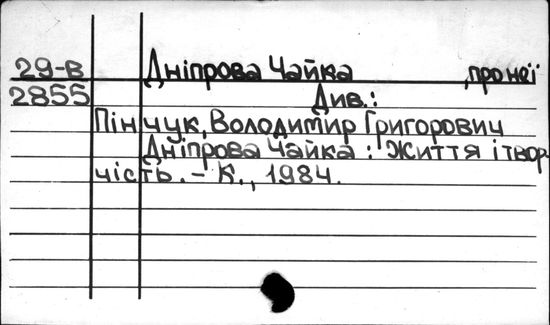 29-В Дніпрова Чайка , про неї
2855 Див.:
Пінчук, Володимир Григорович
Дніпрова Чайка : Життя і твор-
чість. – К., 1984.